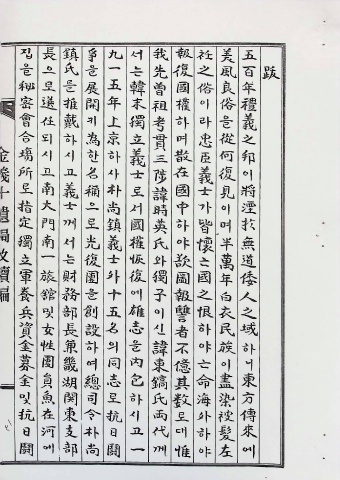 跋
五百年禮義之邦이將湮於無道倭人之域하니東方傳來에
美風良俗을從何復見이며半萬年白衣民族이盡染被髮左
衽之俗이라忠臣義士가皆懷亡國之恨하야亡命海外하야
報復國權하며散在國中하야欲圖報讐者不億其數로대惟
我先曾祖考貫三陟諱時英氏와獨子이신諱東鎬氏兩代께
서는韓末獨立義士로서國權恢復에雄志을內包하시고一
九一五年에上京하사朴尚鎮義士와十五名의同志로抗日鬪
爭을展開키為한名稱으로光復團을創設하여總司令朴尚
鎮氏을推戴하시고義士께서는財務部長兼畿湖關東支部
長으로選任되시고南大門南一旅館및女性團員魚在河에
집을秘密會合場所로指定獨立軍養兵資金募金및抗日鬪